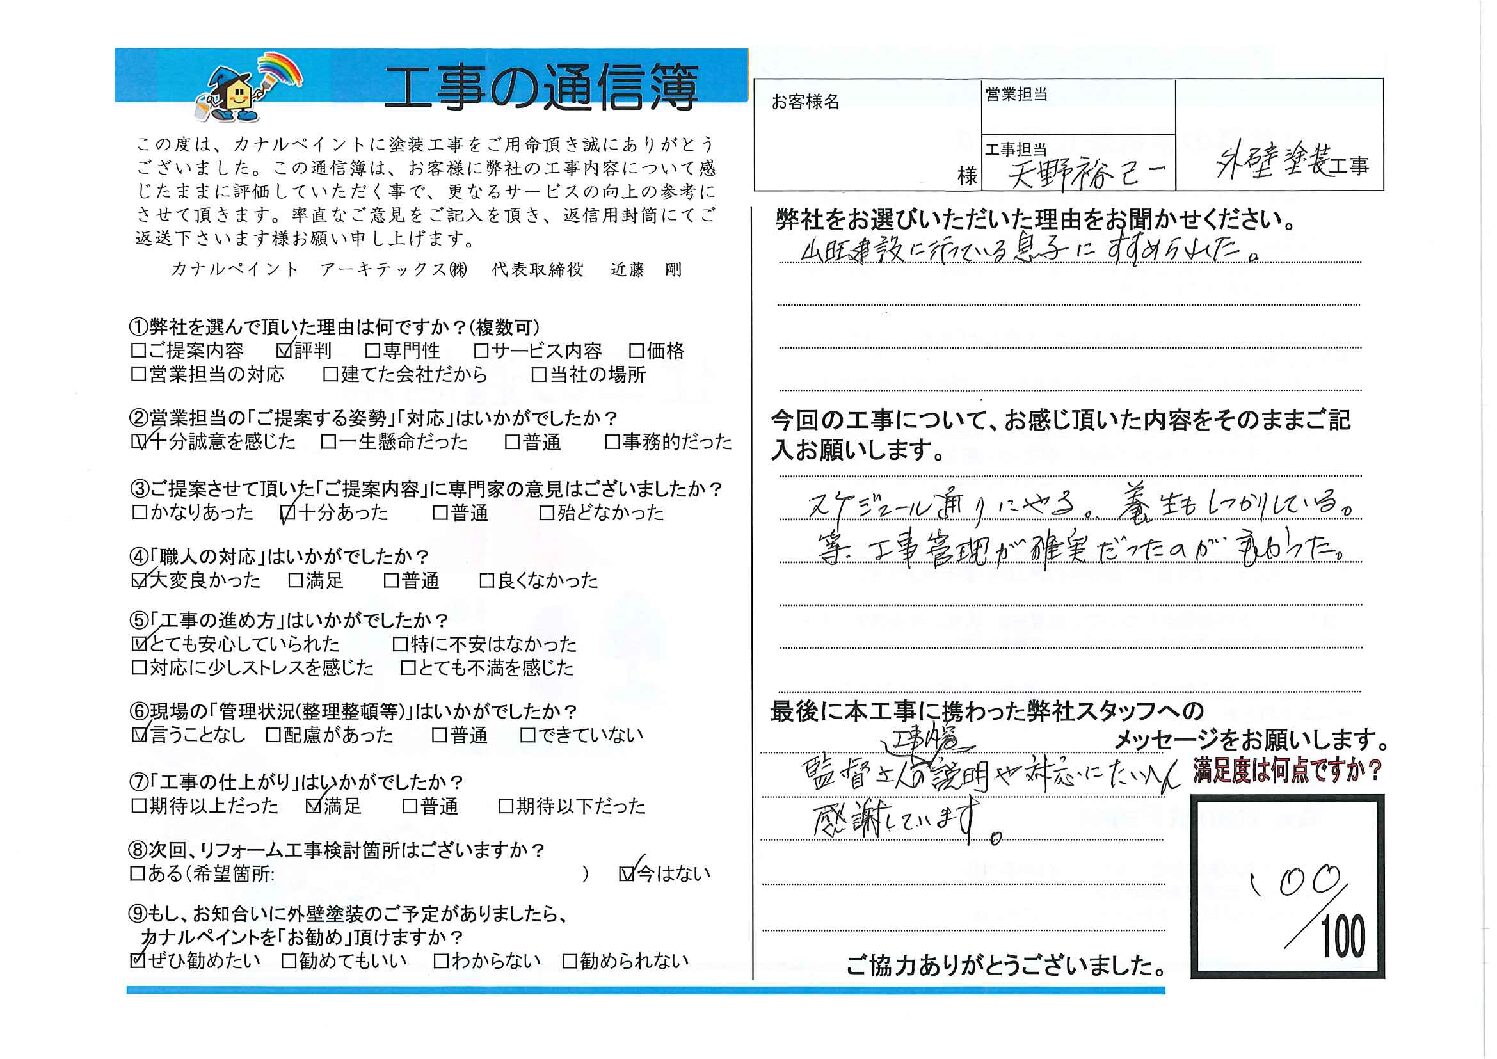 工事の通信簿
この度は、カナルペイントに塗装工事をご用命頂き誠にありがとう
ございました。この通信簿は、お客様に弊社の工事内容について感
じたままに評価していただく事で、更なるサービスの向上の参考に
させて頂きます。率直なご意見をご記入を頂き、返信用封筒にてご
返送下さいます様お願い申し上げます。
カナルペイント アーキテックス㈱ 代表取締役 近藤 剛
①弊社を選んで頂いた理由は何ですか?(複数可)
□ご提案内容 ☑評判 □専門性 □サービス内容 □価格
□営業担当の対応 □建てた会社だから □当社の場所
②営業担当の「ご提案する姿勢」「対応」はいかがでしたか?
☑十分誠意を感じた □一生懸命だった □普通 □事務的だった
③ご提案させて頂いた「ご提案内容」に専門家の意見はございましたか?
□かなりあった ☑十分あった □普通 □殆どなかった
④「職人の対応」はいかがでしたか?
☑大変良かった □満足 □普通 □良くなかった
⑤「工事の進め方」はいかがでしたか?
☑とても安心していられた □特に不安はなかった
□対応に少しストレスを感じた □とても不満を感じた
⑥現場の「管理状況(整理整頓等)」はいかがでしたか?
☑言うことなし □配慮があった □普通 □できていない
⑦「工事の仕上がり」はいかがでしたか?
□期待以上だった ☑満足 □普通 □期待以下だった
⑧次回、リフォーム工事検討箇所はございますか?
□ある(希望箇所: ) ☑今はない
⑨もし、お知合いに外壁塗装のご予定がありましたら、
カナルペイントを「お勧め」頂けますか?
☑ぜひ勧めたい □勧めてもいい □わからない □勧められない
お客様名
様
営業担当
工事担当
天野裕己一
外壁塗装工事
弊社をお選びいただいた理由をお聞かせください。
山旺建設に行っている息子にすすめられた。
今回の工事について、お感じ頂いた内容をそのままご記
入お願いします。
スケジュール通りにやる。養生もしっかりしている。
等、工事管理が確実だったのが良かった。
最後に本工事に携わった弊社スタッフへの
メッセージをお願いします。
工事内容
監督さんの説明や対応にたいへん
感謝しています。
満足度は何点ですか?
100
/100
ご協力ありがとうございました。